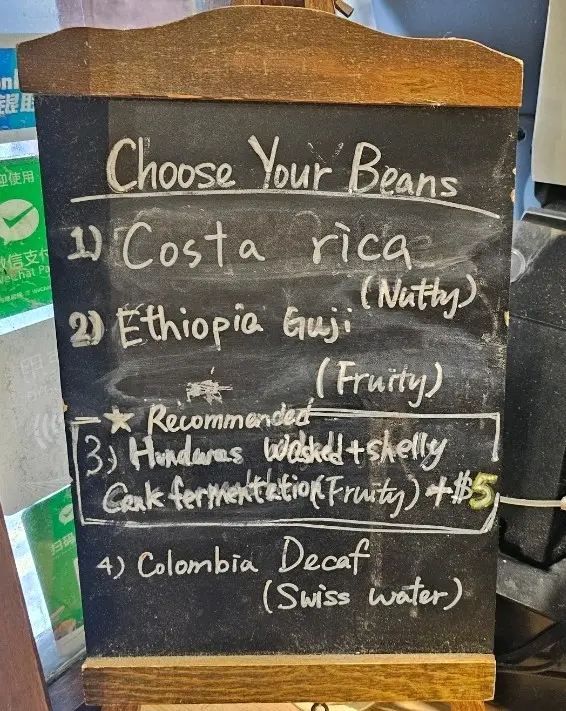 Choose Your Beans
1) Costa rica
(Nutty)
2) Ethiopia Guji
(Fruity)
★ Recommended
3) Honduras Washed + shelly
Cask fermentation (Fruity) + $5
4) Colombia Decaf
(Swiss water)
迎使用
微信支付
WeChat Pay